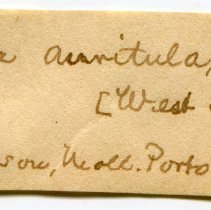 auritula,
[West
son, Moll. Porto